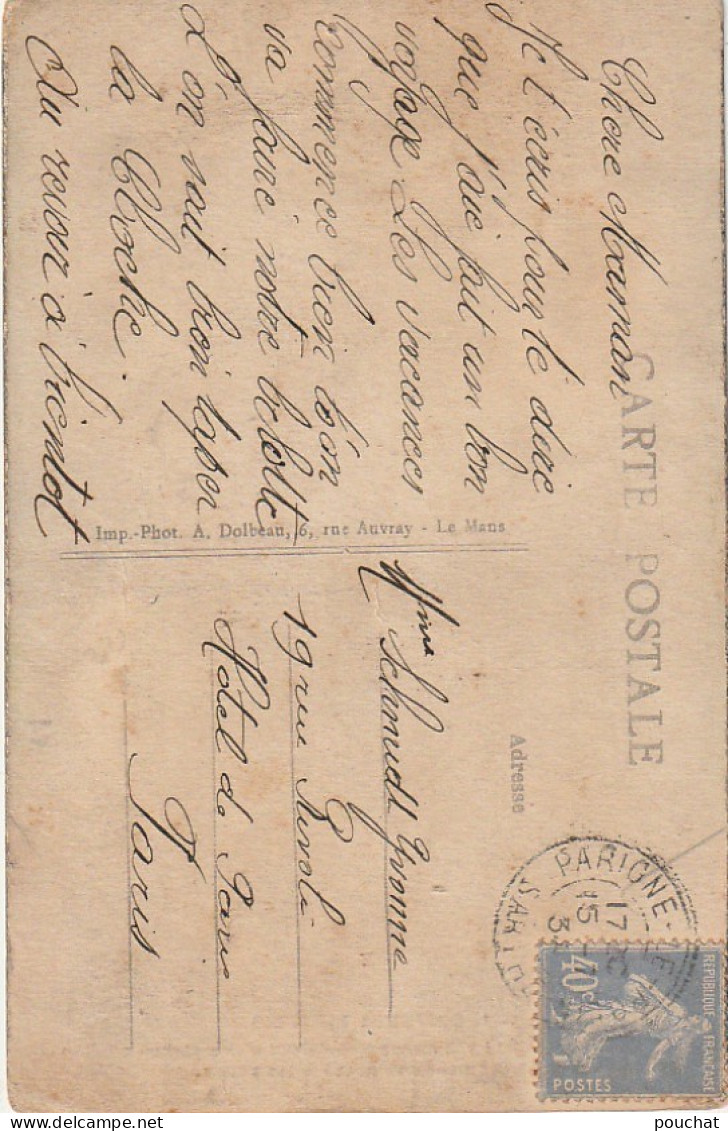 CARTE POSTALE
Chere Maman
Je t'écris pour te dire
que j'aie fait un bon
voyage. Les vacances
commence bien l'on
va faire notre belotte
L'on vait bien taper
la Cloche.
Au revoir à bientot
Imp.-Phot. A. Dolbeau, 6, rue Auvray - Le Mans
Adresse
Mme Schmidt Yvonne
19 rue Rivoli
Hotel de Paris
Paris
PARIGNE
17
15
SARTHE
REPUBLIQUE FRANÇAISE
40c
POSTES
pouchat